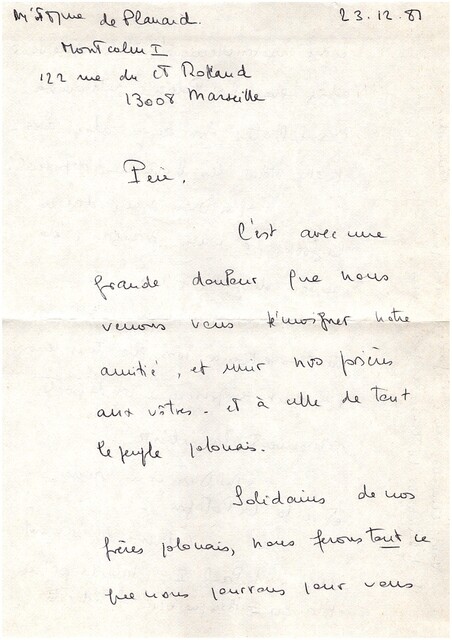 Mr et Mme de Planard. 23.12.81
Montcalm I
122 rue du Ct Rolland
13008 Marseille
Père,
C'est avec une
grande douleur que nous
venons vous témoigner notre
amitié, et unir nos prières
aux vôtres - et à celle de tout
le peuple polonais.
Solidaires de nos
frères polonais, nous ferons tout ce
que nous pourrons pour vous